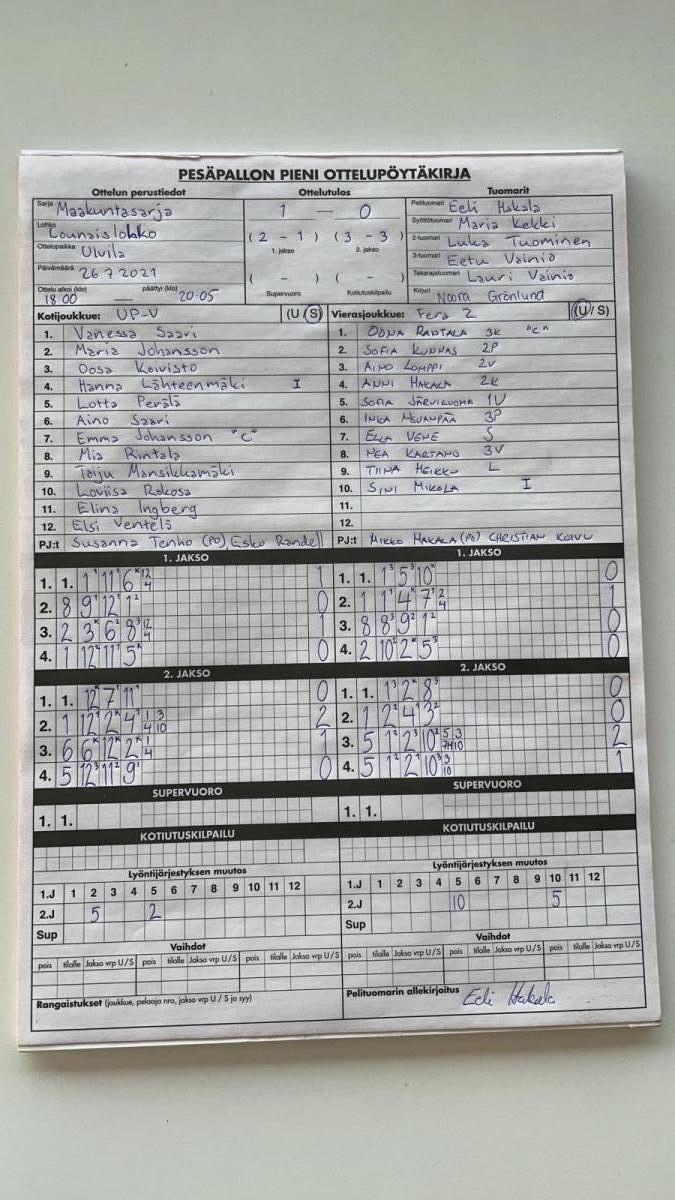 PESÄPALLON PIENI OTTELUPÖYTÄKIRJA
Ottelun perustiedot Ottelutulos Tuomarit
Sarja Maakuntasarja
Lohko Lounaislohko
Ottelupaikka Ulvila
Päivämäärä 26.7 2021
Ottelu alkoi (klo) päättyi (klo)
18:00 — 20:05
1 — 0
( 2 - 1 ) ( 3 - 3 )
1. jakso 2. jakso
( - ) ( - )
Supervuoro Kotiutuskilpailu
Pelituomari Eeli Hakala
Syöttötuomari Maria Kekki
2-tuomari Luka Tuominen
3-tuomari Eetu Vainio
Takarajatuomari Lauri Vainio
Kirjuri Noora Grönlund
Kotijoukkue: UP-V (U/S)
1. Vanessa Saari
2. Maria Johansson
3. Oosa Koivisto
4. Hanna Lähteenmäki I
5. Lotta Perälä
6. Aino Saari
7. Emma Johansson "C"
8. Mia Rintala
9. Taiju Mansikkamäki
10. Loviisa Rekosa
11. Elina Ingberg
12. Elsi Ventelä
PJ:t Susanna Tenho (PO), Esko Randell
Vierasjoukkue: Fera 2 (U/S)
1. OONA RANTALA 3K "C"
2. SOFIA KUNNAS 2P
3. AINO LOMPPI 2V
4. ANNI HAKALA 2K
5. SOFIA JÄRVILUOMA 1V
6. INKA 3P
7. ELLA VENE S
8. NEA KARTANO 3V
9. TIINA HEIKKO L
10. SINI MIKOLA I
11.
12.
PJ:t MIKKO HAKALA (PO) CHRISTIAN KOIVU
1. JAKSO
1. 1. 1 11 6 12 4 1
2. 8 9 12 1 0
3. 2 3 6 8 12 4 1
4. 1 12 11 5 0
1. JAKSO
1. 1. 1 5 10 0
2. 1 1 4 7 2 4 1
3. 8 8 9 1 0
4. 2 10 2 5 0
2. JAKSO
1. 1. 12 7 11 0
2. 1 12 2 4 1 3 4 10 2
3. 6 6 12 2 1 4 1
4. 5 12 11 9 0
2. JAKSO
1. 1. 1 2 8 0
2. 1 2 4 3 0
3. 5 1 2 10 5 3 10 2
4. 5 1 2 10 3 10 1
SUPERVUORO
1. 1.
SUPERVUORO
1. 1.
KOTIUTUSKILPAILU
KOTIUTUSKILPAILU
Lyöntijärjestyksen muutos
1.J 1 2 3 4 5 6 7 8 9 10 11 12
2.J 5 2
Sup
Lyöntijärjestyksen muutos
1.J 1 2 3 4 5 6 7 8 9 10 11 12
2.J 10 5
Sup
Vaihdot
pois tilalle Jakso vrp U/S pois tilalle Jakso vrp U/S pois tilalle Jakso vrp U/S
Vaihdot
pois tilalle Jakso vrp U/S pois tilalle Jakso vrp U/S pois tilalle Jakso vrp U/S
Rangaistukset (joukkue, pelaaja nro, jakso vrp U / S ja syy)
Pelituomarin allekirjoitus Eeli Hakala